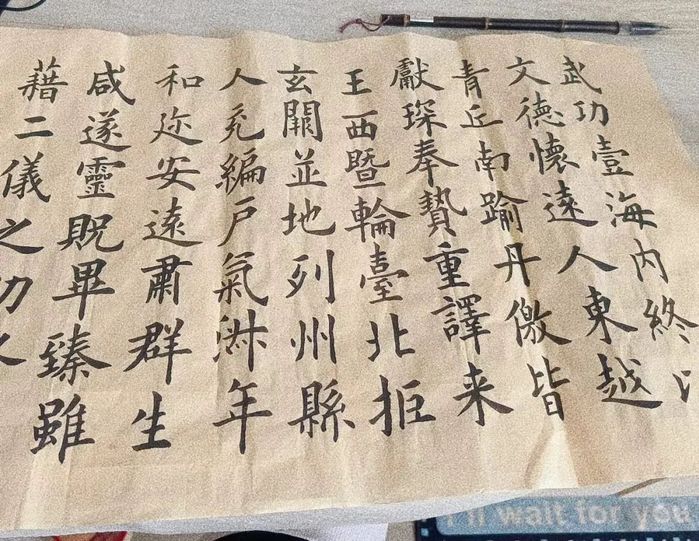 武功壹海内終
文德懷遠人東越
青丘南踰丹徼皆
獻琛奉贄重譯来
王西暨輪臺北拒
玄闕並地列州縣
人充編戶氣淑年
和迩安遠肅群生
咸遂靈貺畢臻雖
藉二儀之功
I'll wait for you